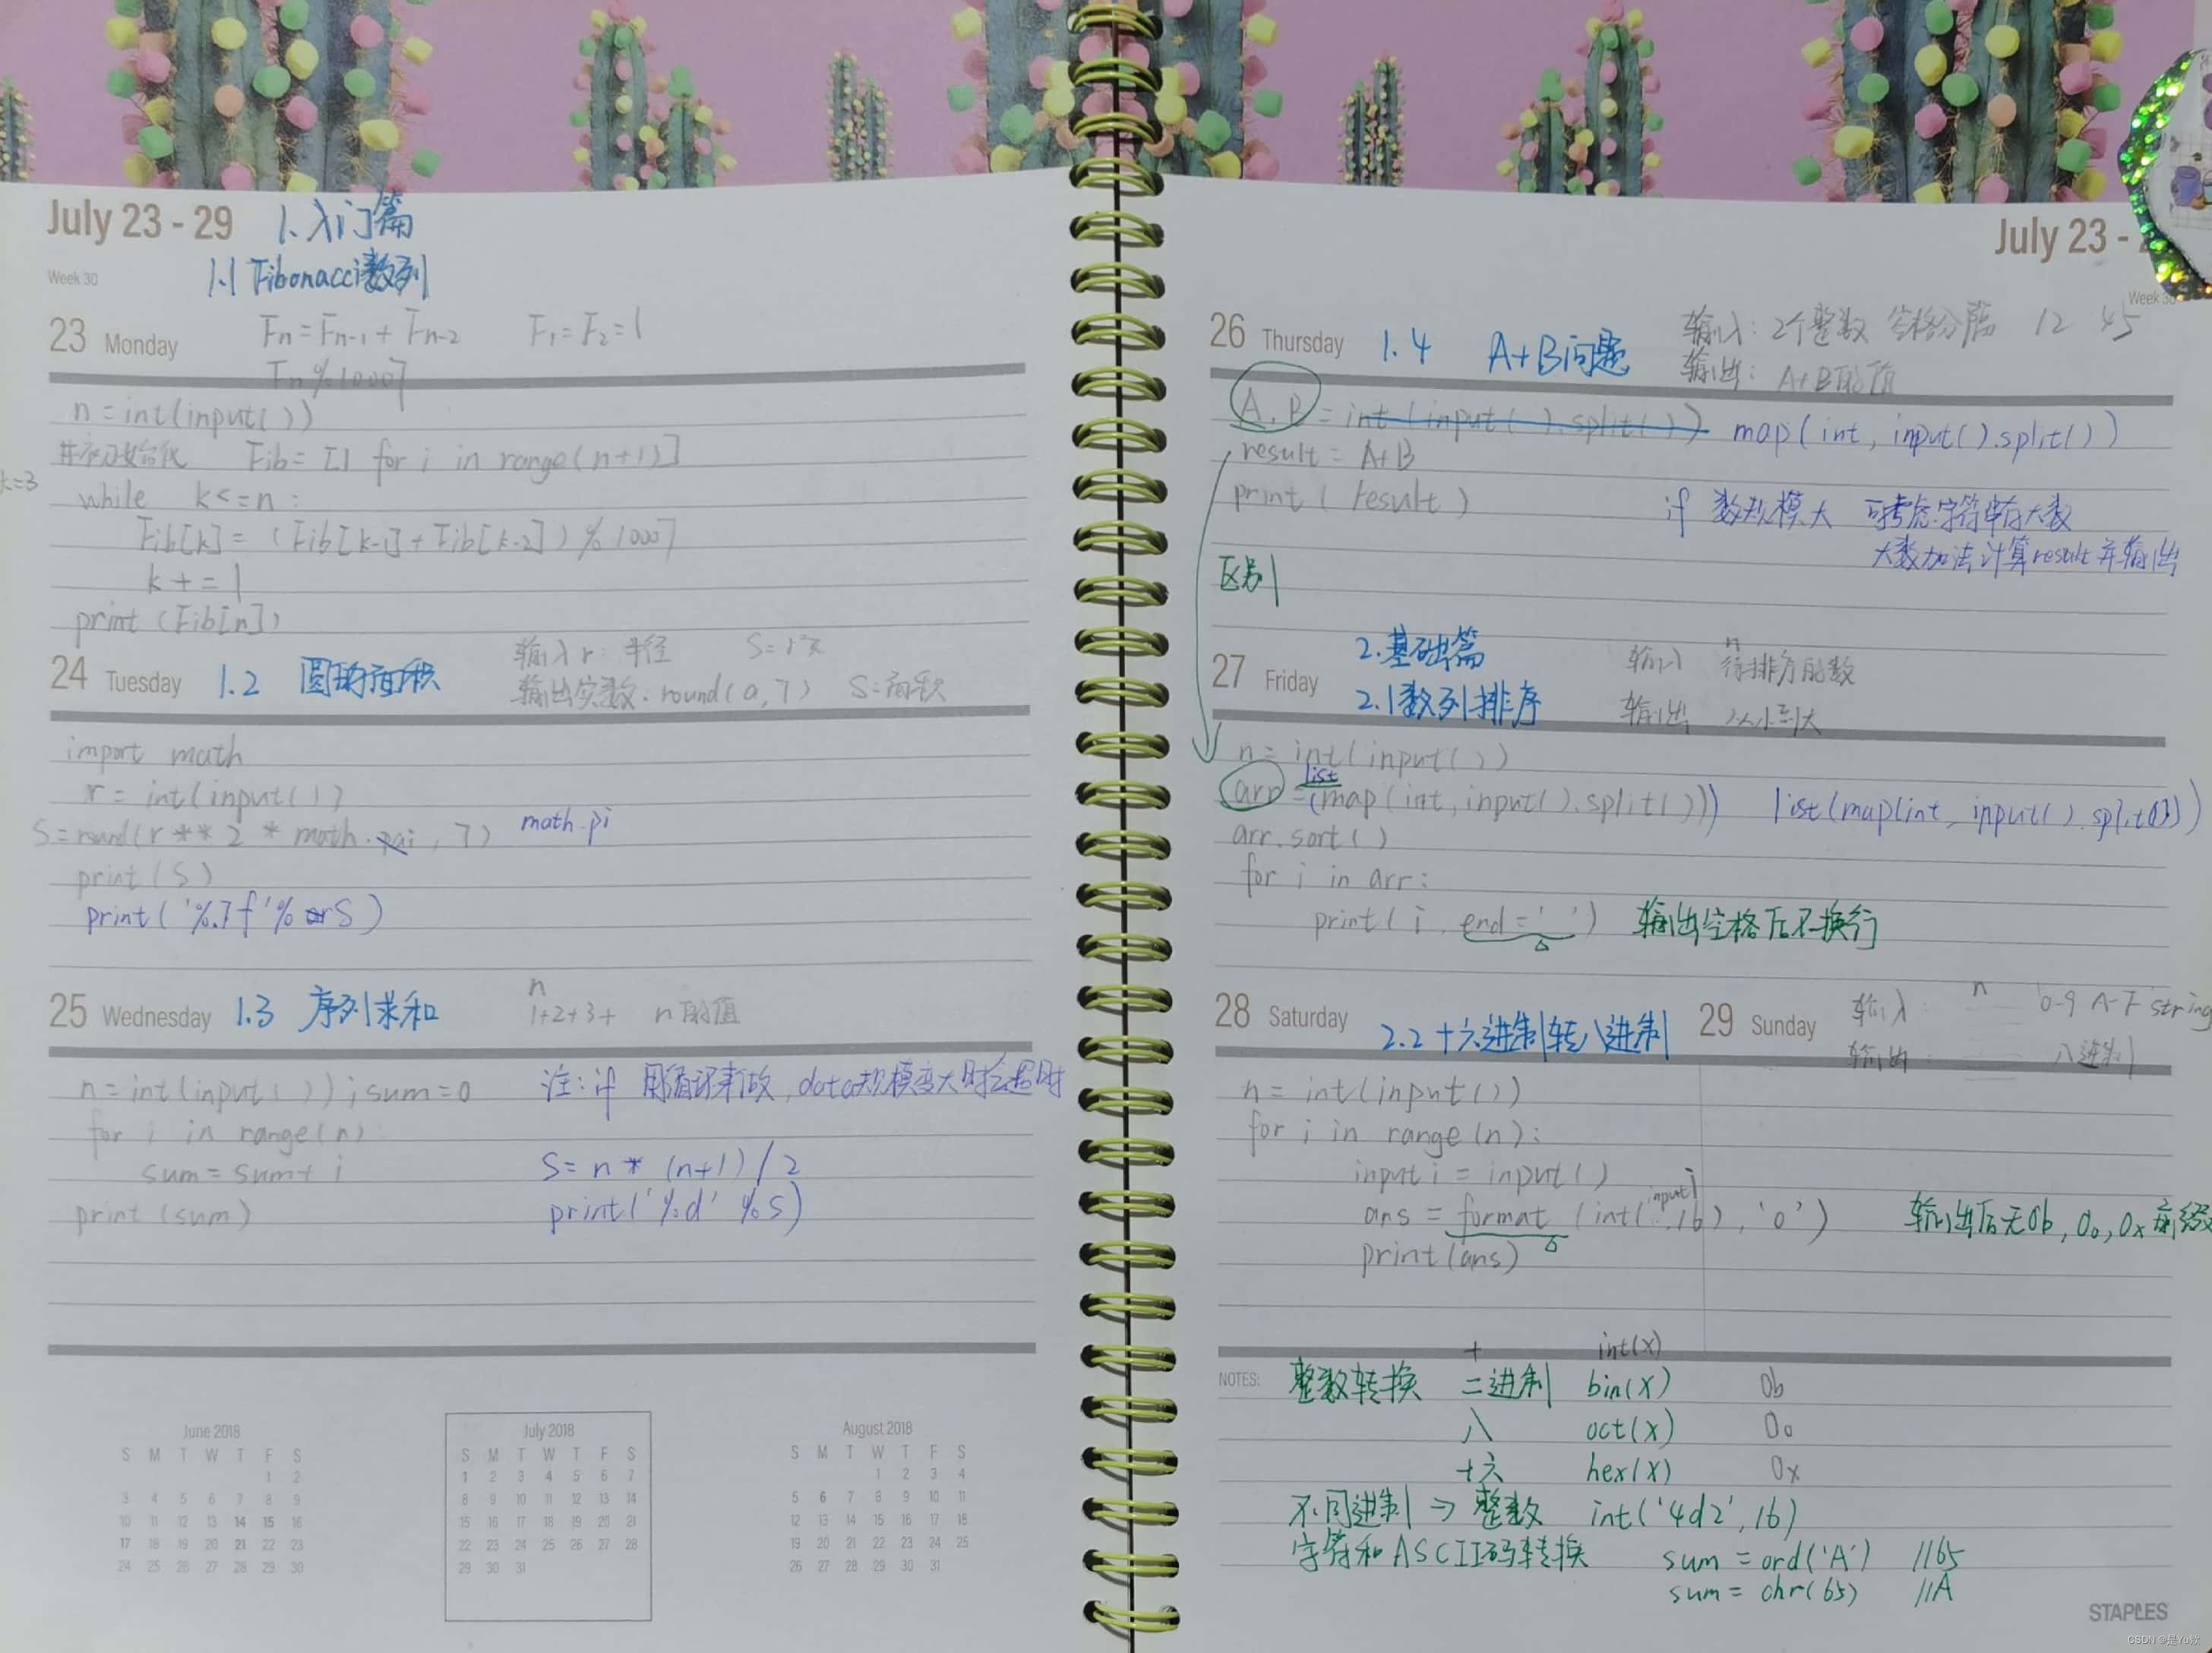 July 23 - 29 1.入门篇
Week 30 1.1 Fibonacci数列
23 Monday Fn=Fn-1+Fn-2 F1=F2=1
Fn%10007
n=int(input())
Fib=[1 for i in range(n+1)]
k=3 while k<=n:
Fib[k]=(Fib[k-1]+Fib[k-2])%10007
k+=1
print(Fib[n])
输入r:半径 S=r²π
24 Tuesday 1.2 圆的面积 输出实数:round(a,7) S=面积
import math
r=int(input())
S=round(r**2*math.pai,7) math.pi
print(S)
print('%.7f'%S)
n
25 Wednesday 1.3 序列求和 1+2+3+ n的值
n=int(input());sum=0 注:if 用循环来做,data规模变大时会超时
for i in range(n)
sum=sum+i S=n*(n+1)/2
print(sum) print('%d'%S)
June 2018
S M T W T F S
1 2
3 4 5 6 7 8 9
10 11 12 13 14 15 16
17 18 19 20 21 22 23
24 25 26 27 28 29 30
July 2018
S M T W T F S
1 2 3 4 5 6 7
8 9 10 11 12 13 14
15 16 17 18 19 20 21
22 23 24 25 26 27 28
29 30 31
August 2018
S M T W T F S
1 2 3 4
5 6 7 8 9 10 11
12 13 14 15 16 17 18
19 20 21 22 23 24 25
26 27 28 29 30 31
July 23 -
Week 30
输入:2个整数 空格分隔 12 45
26 Thursday 1.4 A+B问题 输出:A+B的值
A,B=int(input().split()) map(int,input().split())
result=A+B
print(result) if 数规模大 可考虑字符串存大数
大数加法计算result并输出
区别
2.基础篇 输入 n 待排序的数
27 Friday 2.1数列排序 输出 从小到大
n=int(input())
arr=list(map(int,input().split())) list(map(int,input().split()))
arr.sort()
for i in arr:
print(i,end=' ') 输出空格后不换行
28 Saturday 2.2十六进制转八进制 29 Sunday 输入: n 0-9 A-F string
输出: 八进制
n=int(input())
for i in range(n):
inputi=input()
ans=format(int(inputi,16),'o') 输出后无0b,0o,0x前缀
print(ans)
十 int(x)
NOTES: 整数转换 二进制 bin(x) 0b
八 oct(x) 0o
十六 hex(x) 0x
不同进制→整数 int('4d2',16)
字符和ASCII码转换 sum=ord('A') //65
sum=chr(65) //A
STAPLES
CSDN @是Yu欸